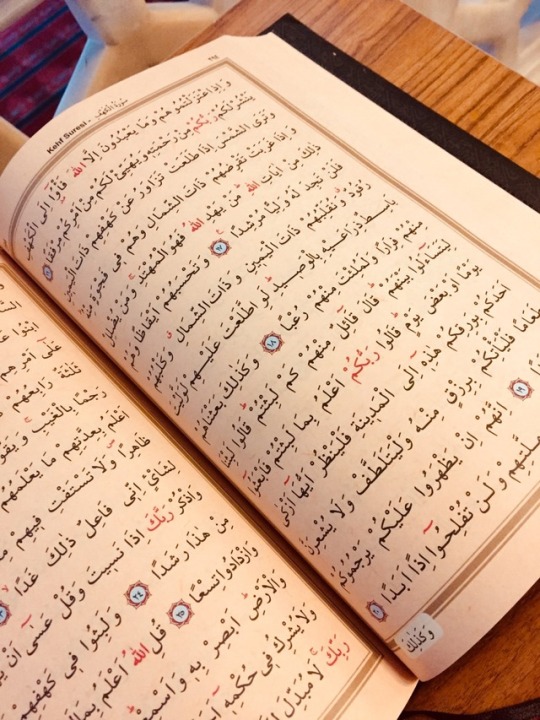 Kehf Suresi - سُورَةُ الْكَهْفِ
وَاِذِ اعْتَزَلْتُمُوهُمْ وَمَا يَعْبُدُونَ اِلَّا اللّٰهَ فَأْوُٓا اِلَى الْكَهْفِ
يَنْشُرْ لَكُمْ رَبُّكُمْ مِنْ رَحْمَتِه۪ وَيُهَيِّئْ لَكُمْ مِنْ اَمْرِكُمْ مِرْفَقًا ١٦
وَتَرَى الشَّمْسَ اِذَا طَلَعَتْ تَزَاوَرُ عَنْ كَهْفِهِمْ ذَاتَ الْيَمِينِ
وَاِذَا غَرَبَتْ تَقْرِضُهُمْ ذَاتَ الشِّمَالِ وَهُمْ ف۪ي فَجْوَةٍ مِنْهُ
ذٰلِكَ مِنْ اٰيَاتِ اللّٰهِ مَنْ يَهْدِ اللّٰهُ فَهُوَ الْمُهْتَدِ وَمَنْ يُضْلِلْ
فَلَنْ تَجِدَ لَهُ وَلِيًّا مُرْشِدًا ١٧ وَتَحْسَبُهُمْ اَيْقَاظًا وَهُمْ
رُقُودٌ وَنُقَلِّبُهُمْ ذَاتَ الْيَمِينِ وَذَاتَ الشِّمَالِ وَكَلْبُهُمْ
بَاسِطٌ ذِرَاعَيْهِ بِالْوَص۪يدِ لَوِ اطَّلَعْتَ عَلَيْهِمْ لَوَلَّيْتَ
مِنْهُمْ فِرَارًا وَلَمُلِئْتَ مِنْهُمْ رُعْبًا ١٨ وَكَذٰلِكَ بَعَثْنَاهُمْ
لِيَتَسَٓاءَلُوا بَيْنَهُمْ قَالَ قَٓائِلٌ مِنْهُمْ كَمْ لَبِثْتُمْ قَالُوا لَبِثْنَا
يَوْمًا اَوْ بَعْضَ يَوْمٍ قَالُوا رَبُّكُمْ اَعْلَمُ بِمَا لَبِثْتُمْ فَابْعَثُٓوا
اَحَدَكُمْ بِوَرِقِكُمْ هٰذِه۪ٓ اِلَى الْمَد۪ينَةِ فَلْيَنْظُرْ اَيُّهَٓا اَزْكٰى
طَعَامًا فَلْيَأْتِكُمْ بِرِزْقٍ مِنْهُ وَلْيَتَلَطَّفْ وَلَا يُشْعِرَنَّ
١٩ اِنَّهُمْ اِنْ يَظْهَرُوا عَلَيْكُمْ يَرْجُمُوكُمْ
مِلَّتِهِمْ وَلَنْ تُفْلِحُٓوا اِذًا اَبَدًا ٢٠
وَكَذٰلِكَ
ثَلٰثَةٌ رَابِعُهُمْ
رَجْمًا بِالْغَيْبِ وَيَقُولُونَ
اَعْلَمُ بِعِدَّتِهِمْ مَا يَعْلَمُهُمْ
ظَاهِرًا وَلَا تَسْتَفْتِ ف۪يهِمْ
لِشَا۬يْءٍ اِنّ۪ي فَاعِلٌ ذٰلِكَ غَدًا ٢٣
وَاذْكُرْ رَبَّكَ اِذَا نَس۪يتَ وَقُلْ عَسٰٓى اَنْ
مِنْ هٰذَا رَشَدًا ٢٤ وَلَبِثُوا ف۪ي كَهْفِهِمْ
وَازْدَادُوا تِسْعًا ٢٥ قُلِ اللّٰهُ اَعْلَمُ بِمَا
وَالْاَرْضِ اَبْصِرْ بِه۪ وَاَسْمِعْ
وَلَا يُشْرِكُ ف۪ي حُكْمِه۪ٓ
رَبِّكَ لَا مُبَدِّلَ